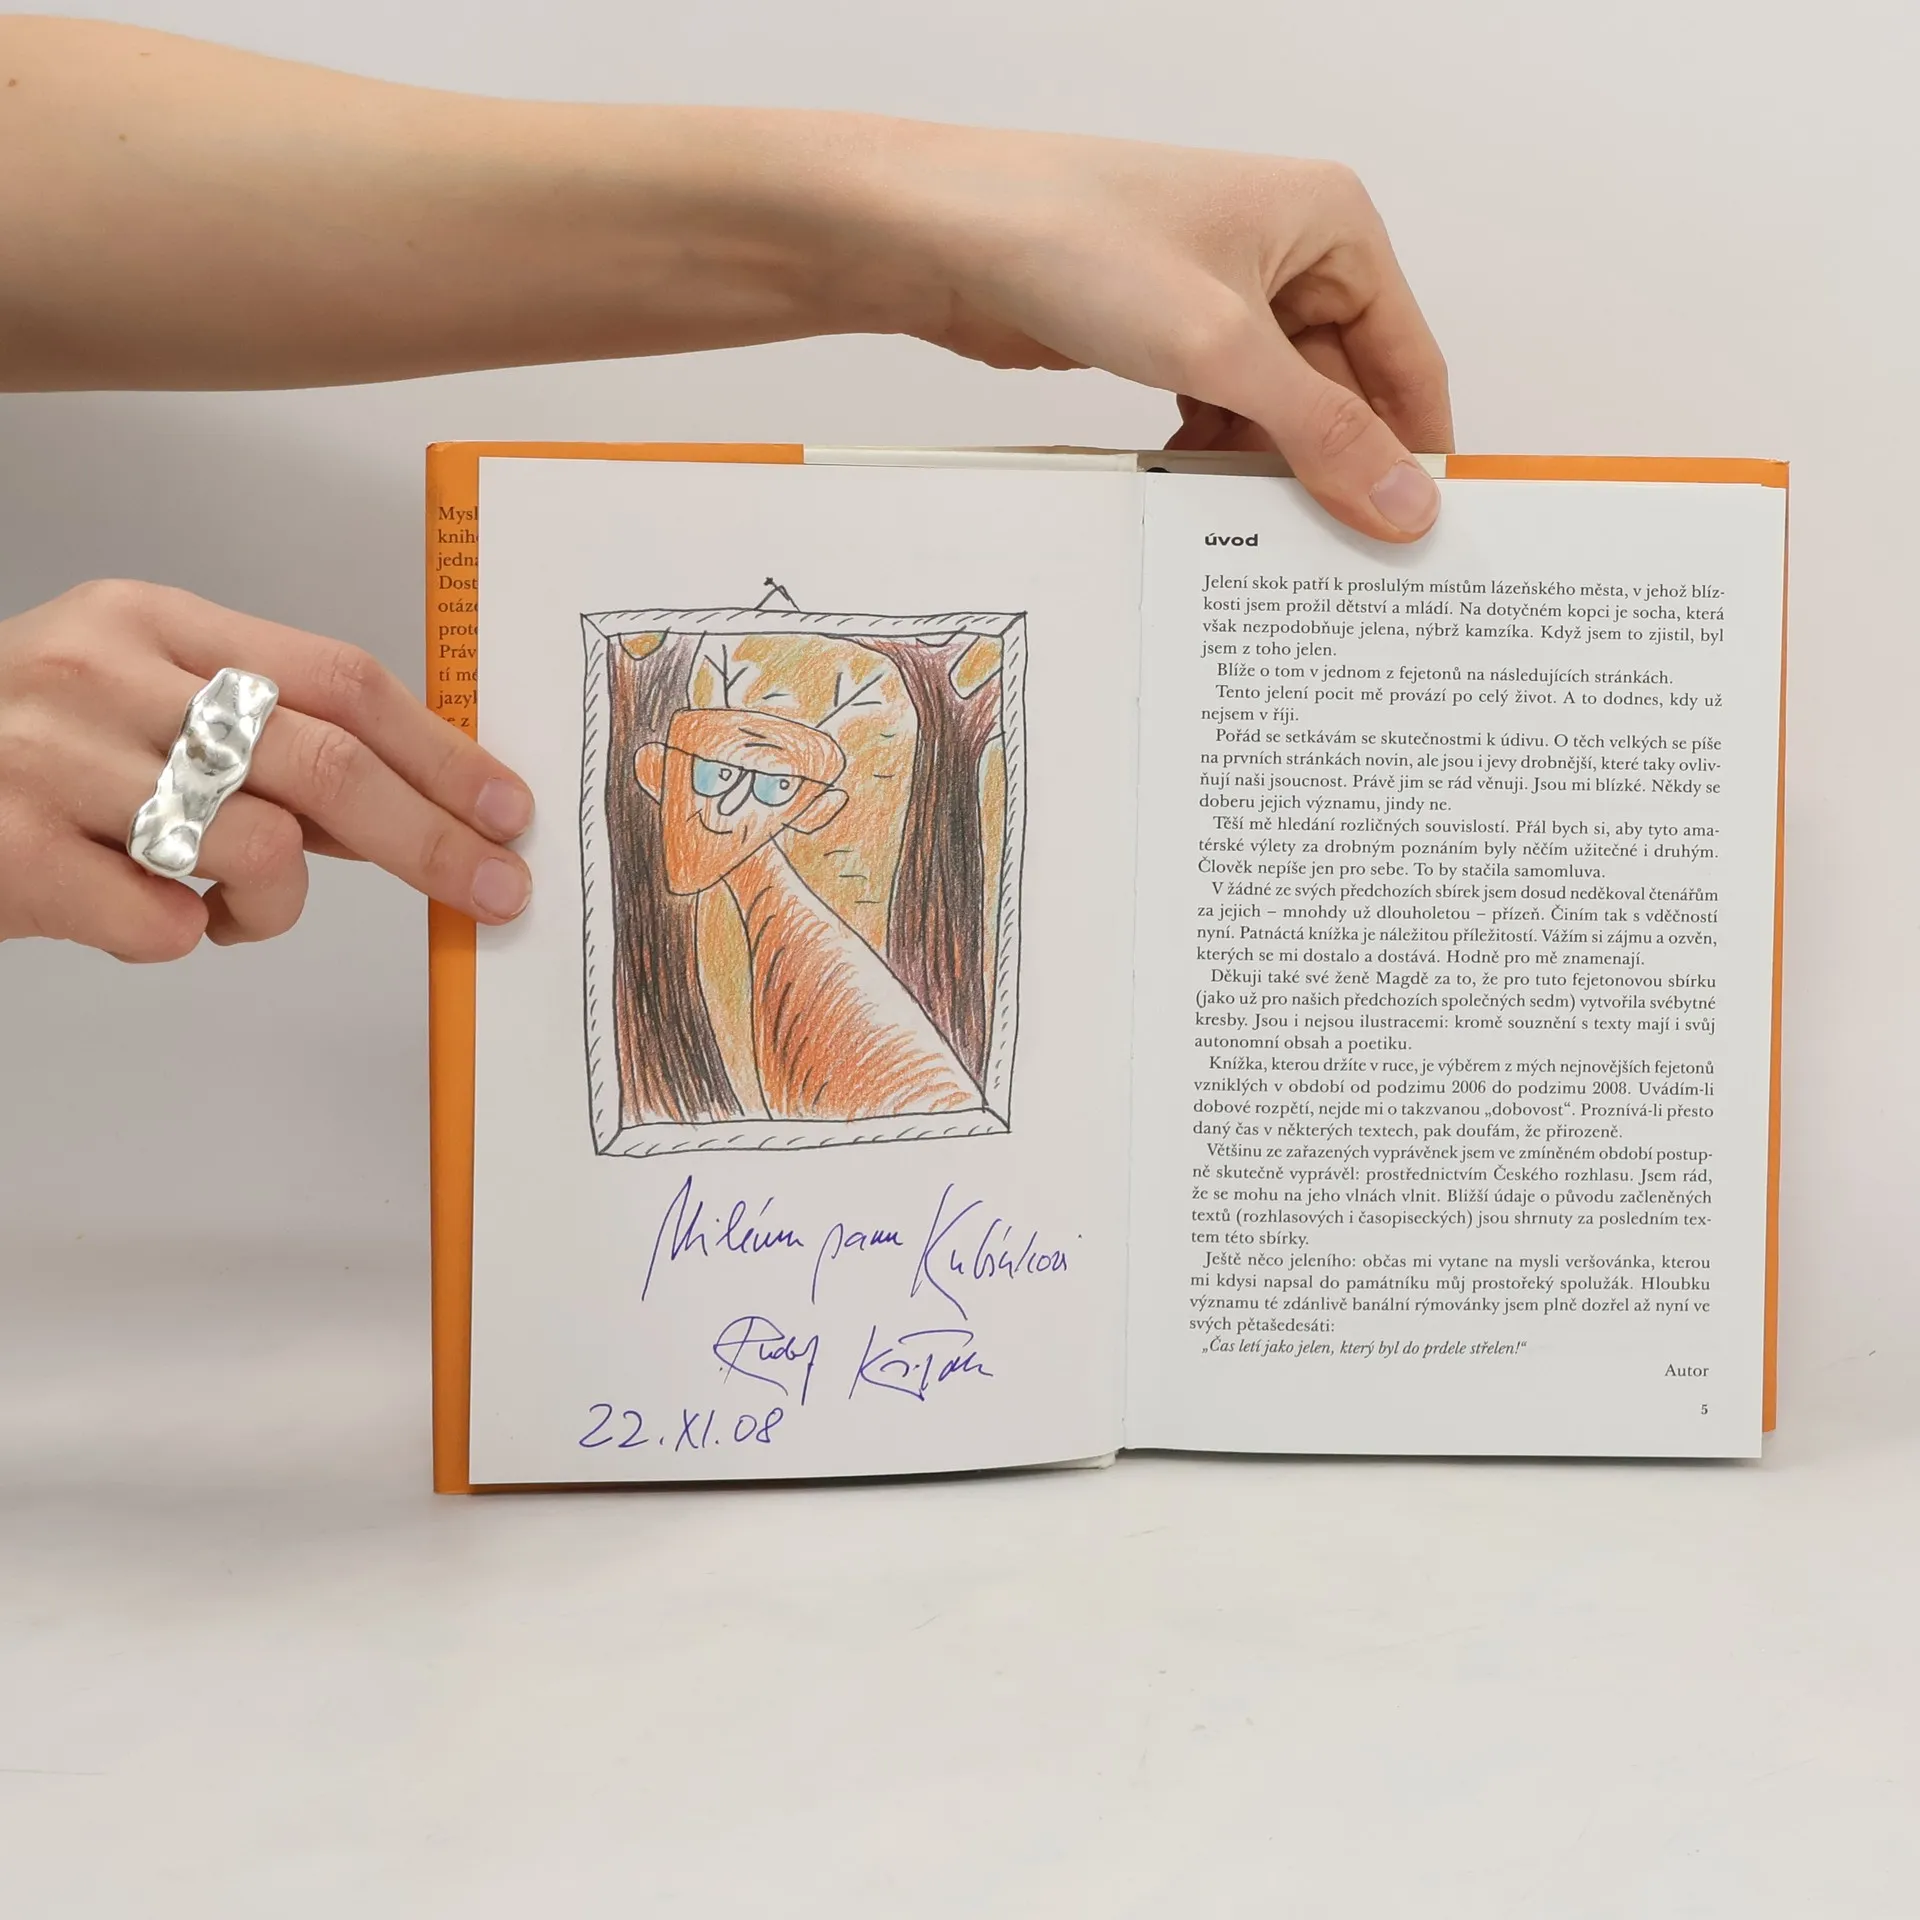 Mysl
knih
jedna
Dost
otáze
prote
Práv
tí mé
jazyk
se z
Milému panu Kubíkovi
Rudolf Křesťan
22.XI.08
úvod
Jelení skok patří k proslulým místům lázeňského města, v jehož blíz-
kosti jsem prožil dětství a mládí. Na dotyčném kopci je socha, která
však nezpodobňuje jelena, nýbrž kamzíka. Když jsem to zjistil, byl
jsem z toho jelen.
Blíže o tom v jednom z fejetonů na následujících stránkách.
Tento jelení pocit mě provází po celý život. A to dodnes, kdy už
nejsem v říji.
Pořád se setkávám se skutečnostmi k údivu. O těch velkých se píše
na prvních stránkách novin, ale jsou i jevy drobnější, které taky ovliv-
ňují naši jsoucnost. Právě jim se rád věnuji. Jsou mi blízké. Někdy se
doberu jejich významu, jindy ne.
Těší mě hledání rozličných souvislostí. Přál bych si, aby tyto ama-
térské výlety za drobným poznáním byly něčím užitečné i druhým.
Člověk nepíše jen pro sebe. To by stačila samomluva.
V žádné ze svých předchozích sbírek jsem dosud neděkoval čtenářům
za jejich – mnohdy už dlouholetou – přízeň. Činím tak s vděčností
nyní. Patnáctá knížka je náležitou příležitostí. Vážím si zájmu a ozvěn,
kterých se mi dostalo a dostává. Hodně pro mě znamenají.
Děkuji také své ženě Magdě za to, že pro tuto fejetonovou sbírku
(jako už pro našich předchozích společných sedm) vytvořila svébytné
kresby. Jsou i nejsou ilustracemi: kromě souznění s texty mají i svůj
autonomní obsah a poetiku.
Knížka, kterou držíte v ruce, je výběrem z mých nejnovějších fejetonů
vzniklých v období od podzimu 2006 do podzimu 2008. Uvádím-li
dobové rozpětí, nejde mi o takzvanou „dobovost“. Proznívá-li přesto
daný čas v některých textech, pak doufám, že přirozeně.
Většinu ze zařazených vyprávěnek jsem ve zmíněném období postup-
ně skutečně vyprávěl: prostřednictvím Českého rozhlasu. Jsem rád,
že se mohu na jeho vlnách vlnit. Bližší údaje o původu začleněných
textů (rozhlasových i časopiseckých) jsou shrnuty za posledním tex-
tem této sbírky.
Ještě něco jeleního: občas mi vytane na mysli veršovánka, kterou
mi kdysi napsal do památníku můj prostořeký spolužák. Hloubku
významu té zdánlivě banální rýmovánky jsem plně dozřel až nyní ve
svých pětašedesáti:
„Čas letí jako jelen, který byl do prdele střelen!“
Autor
5